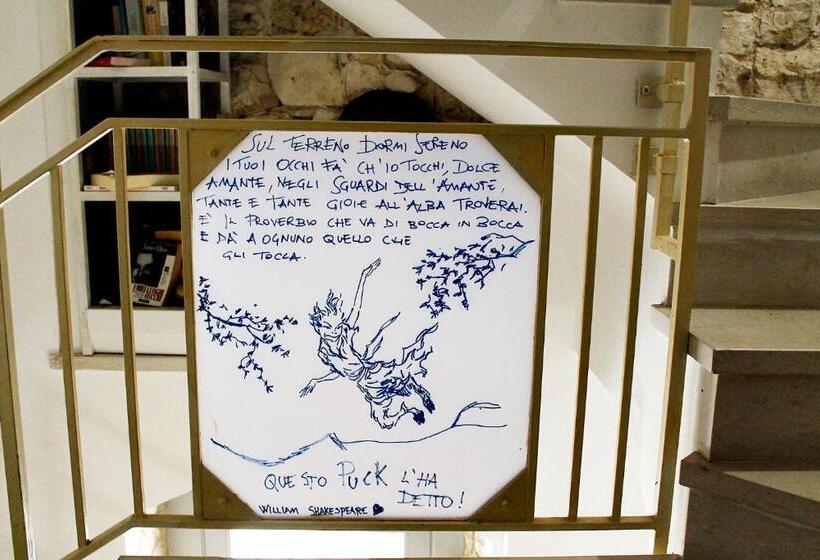 SUL TERRENO DORMI SERENO
I TUOI OCCHI FA' CH'IO TOCCHI, DOLCE
AMANTE, NEGLI SGUARDI DELL'AMANTE,
TANTE E TANTE GIOIE ALL'ALBA TROVERAI.
E' IL PROVERBIO CHE VA DI BOCCA IN BOCCA
E DA' A OGNUNO QUELLO CHE
GLI TOCCA.
QUESTO PUCK L'HA
DETTO!
WILLIAM SHAKESPEARE